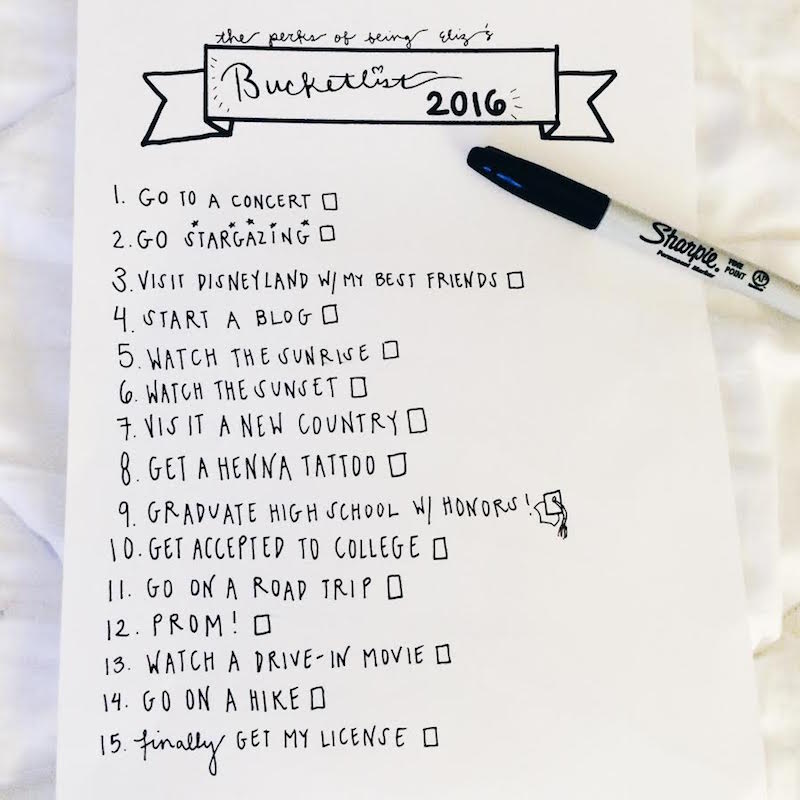 the perks of being eliz's
Bucketlist
2016
1. GO TO A CONCERT
2. GO STARGAZING
3. VISIT DISNEYLAND W/ MY BEST FRIENDS
4. START A BLOG
5. WATCH THE SUNRISE
6. WATCH THE SUNSET
7. VISIT A NEW COUNTRY
8. GET A HENNA TATTOO
9. GRADUATE HIGH SCHOOL W/ HONORS!
10. GET ACCEPTED TO COLLEGE
11. GO ON A ROAD TRIP
12. PROM!
13. WATCH A DRIVE-IN MOVIE
14. GO ON A HIKE
15. finally GET MY LICENSE
Sharpie.
Permanent Marker
FINE
POINT
AP